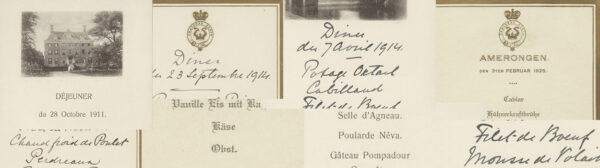 DÉJEUNER
du 28 Octobre 1911.
Chaud froid de Poulet
Perdreaux
Diner
du 23 Septembre 1914.
Vanille Eis mit Ka
Käse
Obst.
Diner
du 7 Avril 1914.
Potage Oxtail
Cabillaud
Filet de Boeuf
Selle d'Agneau.
Poularde Néva.
Gâteau Pompadour
AMERONGEN
DEN 3TEN FEBRUAR 1925.
Caviar
Hühnerkraftbrühe
Filet de Boeuf
Mousse de Volai